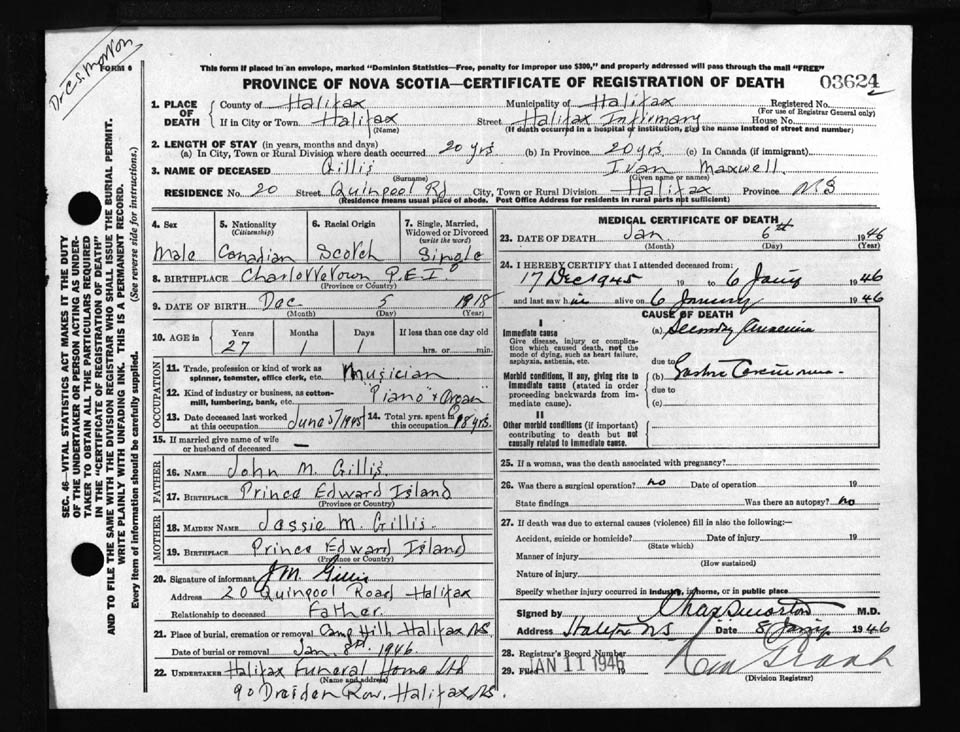 Dr C.S. Morton
FORM 6
This form if placed in an envelope, marked "Dominion Statistics—Free, penalty for improper use $300," and properly addressed will pass through the mail "FREE"
PROVINCE OF NOVA SCOTIA—CERTIFICATE OF REGISTRATION OF DEATH 03624
SEC. 46—VITAL STATISTICS ACT MAKES IT THE DUTY
OF THE UNDERTAKER OR PERSON ACTING AS UNDER-
TAKER TO OBTAIN ALL THE PARTICULARS REQUIRED
IN THE "CERTIFICATE OF REGISTRATION OF DEATH"
AND TO FILE THE SAME WITH THE DIVISION REGISTRAR WHO SHALL ISSUE THE BURIAL PERMIT.
WRITE PLAINLY WITH UNFADING INK. THIS IS A PERMANENT RECORD.
Every item of information should be carefully supplied. (See reverse side for instructions.)
1. PLACE OF DEATH County of Halifax Municipality of Halifax Registered No.
(For use of Registrar General only)
If in City or Town Halifax Street Halifax Infirmary House No.
(Name) (If death occurred in a hospital or institution, give the name instead of street and number)
2. LENGTH OF STAY (in years, months and days)
(a) In City, Town or Rural Division where death occurred 20 yrs (b) In Province 20 yrs (c) In Canada (if immigrant)
3. NAME OF DECEASED Gillis Ivan Maxwell.
(Surname) (Given name or names)
RESIDENCE No. 20 Street Quinpool Rd City, Town or Rural Division Halifax Province NS
(Residence means usual place of abode. Post Office Address for residents in rural parts not sufficient)
4. Sex 5. Nationality (Citizenship) 6. Racial Origin 7. Single, Married, Widowed or Divorced (write the word)
Male Canadian Scotch Single
8. BIRTHPLACE Charlottetown P.E.I
(Province or Country)
9. DATE OF BIRTH Dec 5 1918
(Month) (Day) (Year)
10. AGE in Years Months Days If less than one day old
27 1 1 hrs. or min.
OCCUPATION
11. Trade, profession or kind of work as spinner, teamster, office clerk, etc. Musician
12. Kind of industry or business, as cotton-mill, lumbering, bank, etc. "Piano" & Organ"
13. Date deceased last worked at this occupation June 5/1945 14. Total yrs. spent in this occupation 8 yrs.
15. If married give name of wife or husband of deceased —
FATHER
16. NAME John M. Gillis
17. BIRTHPLACE Prince Edward Island
(Province or Country)
MOTHER
18. MAIDEN NAME Jessie M. Gillis.
19. BIRTHPLACE Prince Edward Island
(Province or Country)
20. Signature of informant J.M. Gillis
Address 20 Quinpool Road Halifax
Relationship to deceased Father.
21. Place of burial, cremation or removal Camp Hill Halifax NS
Date of burial or removal Jan. 8th 1946.
22. UNDERTAKER Halifax Funeral Home Ltd
(Name and address)
90 Dresden Row, Halifax, NS.
MEDICAL CERTIFICATE OF DEATH
23. DATE OF DEATH Jan. 6th 1946
(Month) (Day) (Year)
24. I HEREBY CERTIFY that I attended deceased from:
17 Dec 1945 to 6 Jany 1946
and last saw him alive on 6 January 1946
CAUSE OF DEATH
I
Immediate cause (a) Secondary Anaemia
Give disease, injury or complication which caused death, not the mode of dying, such as heart failure, asphyxia, asthenia, etc.
due to
Morbid conditions, if any, giving rise to immediate cause (stated in order proceeding backwards from immediate cause). (b) Gastric Carcinoma
due to
(c)
II
Other morbid conditions (if important) contributing to death but not causally related to immediate cause.
25. If a woman, was the death associated with pregnancy?
26. Was there a surgical operation? no Date of operation 19
State findings Was there an autopsy? no
27. If death was due to external causes (violence) fill in also the following:—
Accident, suicide or homicide? Date of injury 19
(State which)
Manner of injury
(How sustained)
Nature of injury
Specify whether injury occurred in industry, in home, or in public place
Signed by Chas S Morton M.D.
Address Halifax NS Date 8 Jany 1946
28. Registrar's Record Number
29. Filed JAN 11 1946
(Division Registrar)